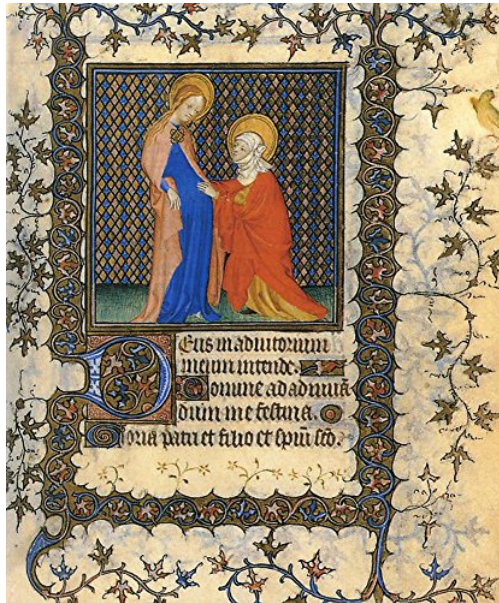 Deus in adiutorium
meum intende.
Domine ad adiuuā
dum me festina.
Gloria patri et filio et spiri sco.